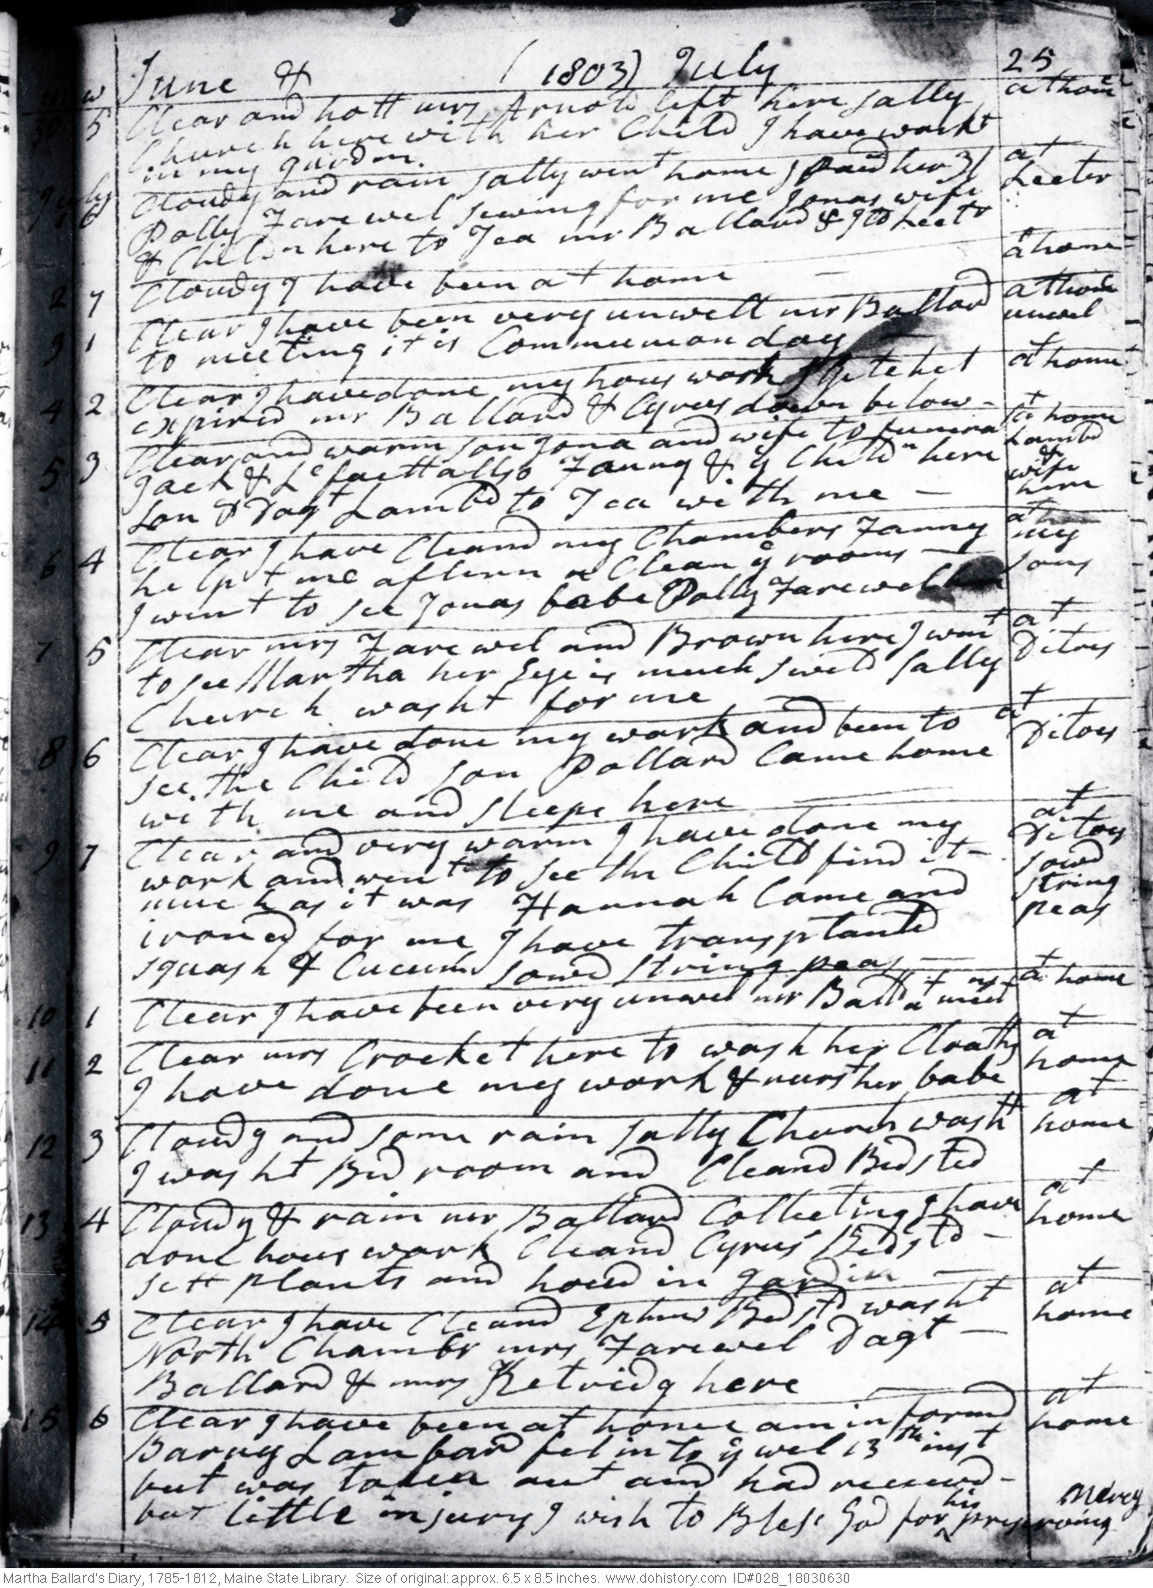 June & (1803) July 25
m w
30 5 Clear and hott mrs Arnold left here Sally at home
Church here with her Child I have workt
in my gardin.
July
1 6 Cloudy and rain Sally went home I paid her 3/ at
Polly Farewel sewing for me Jonas wife Lecter
& Childn here to Tea mr Ballard & I to Lectr
2 7 Cloudy I have been at home at home
3 1 Clear I have been very unwell mr Ballard at home
to meeting it is Communion day unwel
4 2 Clear I have done my hous work at home
expired mr Ballard & Cyrus down below
5 3 Clear and warm son Jona and wife to funeral at home
Jack & Lafaett allso Fanny & ye Childn here Lambd
son & Dagt Lambd to Tea with me & wife here
6 4 Clear I have Cleand my Chambers Fanny at my
helpt me aftern a Cleang rooms sons
I went to see Jonas babe Polly Farewel here
7 5 Clear mrs Farewel and Brown here I went at
to see Martha her Eye is much sweld Sally Ditoes
Church washt for me
8 6 Clear I have done my work and been to at
see the Child son Pollard Came home Ditoes
with me and sleeps here
9 7 Clear and very warm I have done my at
work and went to see the Child find it Ditoes
much as it was Hannah Came and sowd
ironed for me I have transplanted string
squash & Cucumbr sowd string peas peas
10 1 Clear I have been very unwel mr Balld at meet at home
11 2 Clear mrs Crocket here to wash her Cloaths at
I have done my work & nurst her babe home
12 3 Cloudy and some rain Sally Church washt at
I washt Bed room and Cleand Bedsted home
13 4 Cloudy & rain mr Ballard Collecting I have at
done hous work Cleand Cyrus' Bedstd home
sett plants and howd in gardin
14 5 Clear I have Cleand Ephms Bedstd washt at
North Chambr mrs Farewel Dagt home
Ballard & mrs Ketridg here
15 6 Clear I have been at home am informd at
Barny Lambard fel into ye wel 13th inst home
but was taken out and had receivd
but little injury I wish to Bless God for his preserving mercy
Martha Ballard's Diary, 1785-1812, Maine State Library. Size of original: approx. 6.5 x 8.5 inches. www.dohistory.com ID#028_18030630